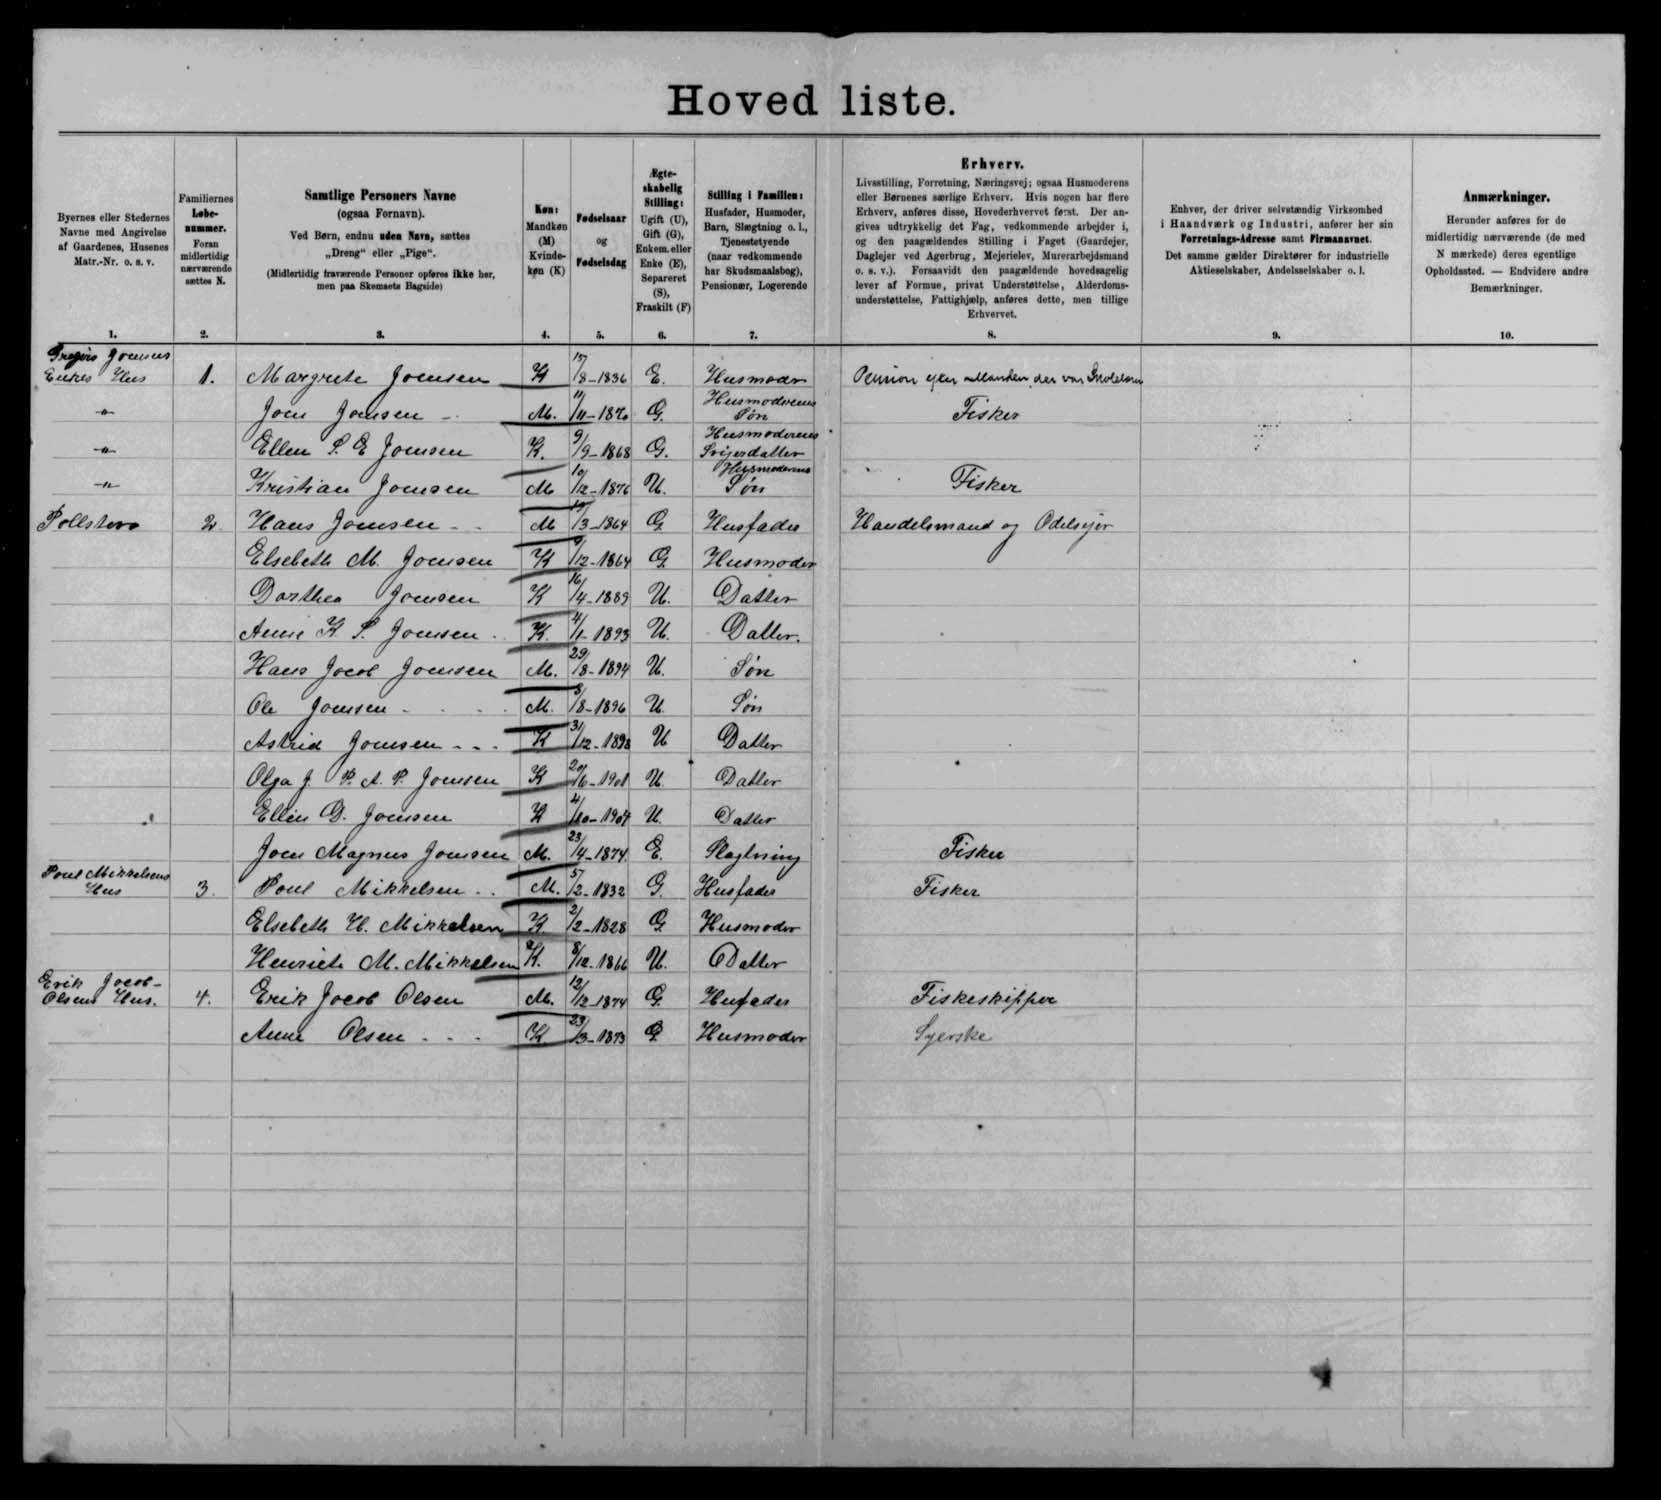 Hoved liste.
Byernes eller Stedernes
Navne med Angivelse
af Gaardenes, Husenes
Matr.-Nr. o. s. v.
1.
Familiernes
Løbe-
nummer.
Foran
midlertidig
nærværende
sættes N.
2.
Samtlige Personers Navne
(ogsaa Fornavn).
Ved Børn, endnu uden Navn, sættes
„Dreng" eller „Pige".
(Midlertidig fraværende Personer opføres ikke her,
men paa Skemaets Bagside)
3.
Køn:
Mandkøn
(M)
Kvinde-
køn (K)
4.
Fødselsaar
og
Fødselsdag
5.
Ægte-
skabelig
Stilling:
Ugift (U),
Gift (G),
Enkem. eller
Enke (E),
Separeret
(S),
Fraskilt (F)
6.
Stilling i Familien:
Husfader, Husmoder,
Barn, Slægtning o. l.,
Tjenestetyende
(naar vedkommende
har Skudsmaalsbog),
Pensionær, Logerende
7.
Erhverv.
Livsstilling, Forretning, Næringsvej; ogsaa Husmoderens
eller Børnenes særlige Erhverv. Hvis nogen har flere
Erhverv, anføres disse, Hovederhvervet først. Der an-
gives udtrykkelig det Fag, vedkommende arbejder i,
og den paagældendes Stilling i Faget (Gaardejer,
Daglejer ved Agerbrug, Mejerielev, Murerarbejdsmand
o. s. v.). Forsaavidt den paagældende hovedsagelig
lever af Formue, privat Understøttelse, Alderdoms-
understøttelse, Fattighjælp, anføres dette, men tillige
Erhvervet.
8.
Enhver, der driver selvstændig Virksomhed
i Haandværk og Industri, anfører her sin
Forretnings-Adresse samt Firmanavnet.
Det samme gælder Direktører for industrielle
Aktieselskaber, Andelsselskaber o. l.
9.
Anmærkninger.
Herunder anføres for de
midlertidig nærværende (de med
N mærkede) deres egentlige
Opholdssted. — Endvidere andre
Bemærkninger.
10.
Joensens
Enkes Hus 1. Margrete Joensen K 15/8-1836 E. Husmoder Pension efter Manden, der var
-"- Joen Joensen - M. 11/11-1870 G. Husmoderens Søn Fisker
-"- Ellen S. E Joensen K. 9/9-1868 G. Husmoderens Svigerdatter
-"- Kristian Joensen M 10/12-1876 U. Husmoderens Søn Fisker
2. Hans Joensen - - M 19/3-1864 G Husfader Handelsmand og Odelsejer
Elsebeth M. Joensen K 9/12-1864 G. Husmoder
Dorthea Joensen K 16/4-1889 U. Datter
Anne K. S. Joensen - K. 4/1-1893 U. Datter.
Hans Jacob Joensen M. 29/8-1894 U. Søn
Ole Joensen - - - M. 8/8-1896 U. Søn
Astrid Joensen - - - K 31/12-1898 U Datter
Olga J. P. A. P. Joensen K 20/6-1901 U. Datter
Ellen G. Joensen K 4/10-1904 U. Datter
Joen Magnus Joensen M. 23/4-1874. E. Slægtning Fisker
Poul Mikkelsens
Hus 3. Poul Mikkelsen - - M. 5/2-1832 G. Husfader Fisker
Elsebeth H. Mikkelsen K. 2/2-1828 G Husmoder
Henriete M. Mikkelsen K. 8/12-1866 U. Datter
Erik Jacob-
Olsens Hus. 4. Erik Jacob Olsen M. 12/12-1874 G. Husfader Fiskeskipper
Anne Olsen - - - K 23/3-1873 G Husmoder Syerske